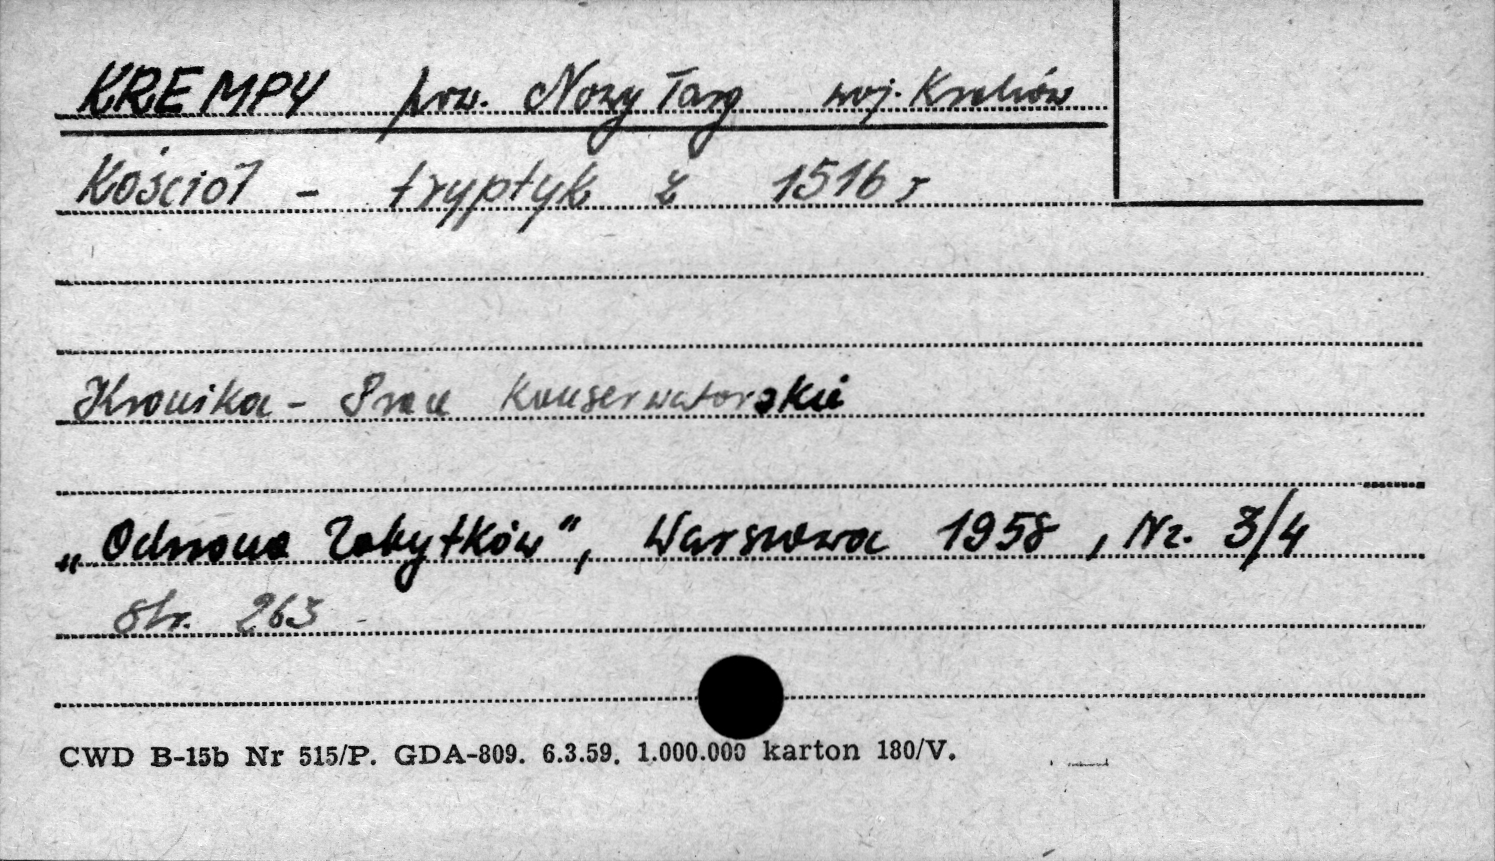 KREMPY pow. Nowy Targ woj. Kraków
Kościoł - tryptyk z 1516 r
Kronika - Prace Konserwatorskie
„Ochrona Zabytków", Warszawa 1958, Nr. 3/4
Str. 263
CWD B-15b Nr 515/P. GDA-809. 6.3.59. 1.000.000 karton 180/V.